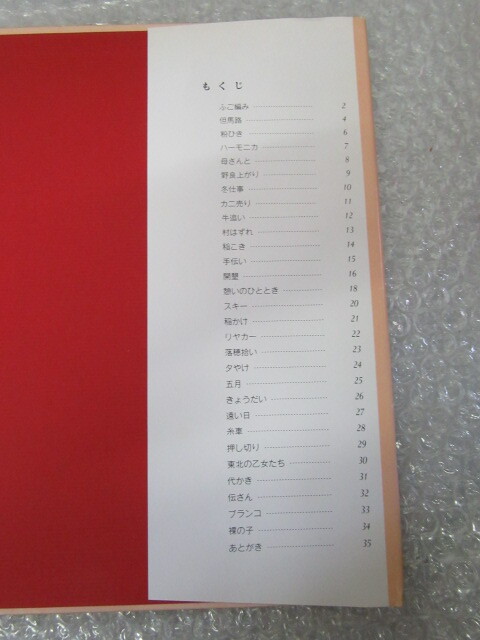 もくじ
ふご編み 2
但馬路 4
粉ひき 6
ハーモニカ 7
母さんと 8
野良上がり 9
冬仕事 10
カニ売り 11
牛追い 12
村はずれ 13
稲こき 14
手伝い 15
開墾 16
憩いのひととき 18
スキー 20
稲かけ 21
リヤカー 22
落穂拾い 23
夕やけ 24
五月 25
きょうだい 26
遠い日 27
糸車 28
押し切り 29
東北の乙女たち 30
代かき 31
伝さん 32
ブランコ 33
裸の子 34
あとがき 35